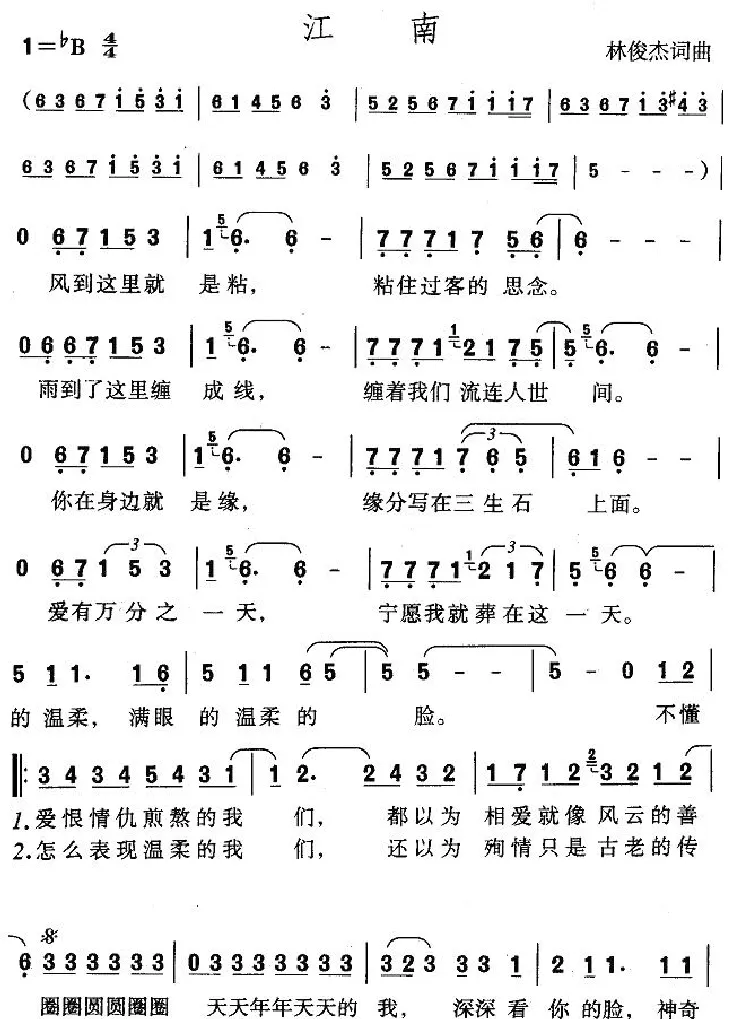 江 南
1=♭B 4/4 林俊杰词曲
(6 3 6 7 1 5 3 1 | 6 1 4 5 6 3 | 5 2 5 6 7 1 1 1 7 | 6 3 6 7 1 3 #4 3 |
6 3 6 7 1 5 3 1 | 6 1 4 5 6 3 | 5 2 5 6 7 1 1 1 7 | 5 - - - )
0 6 7 1 5 3 | 1 5 6. 6 - | 7 7 7 1 7 5 6 | 6 - - - |
风到这里就 是粘, 粘住过客的 思念。
0 6 6 7 1 5 3 | 1 5 6. 6 - | 7 7 7 1 1 2 1 7 5 | 5 5 6. 6 - |
雨到了这里缠 成线, 缠着我们 流连人世 间。
0 6 7 1 5 3 | 1 5 6. 6 - | 7 7 7 1 7 6 5 | 6 1 6 - - |
你在身边就 是缘, 缘分写在三生石 上面。
0 6 7 1 5 3 | 1 5 6. 6 - | 7 7 7 1 1 2 1 7 | 5 5 6 6 - |
爱有万分之 一天, 宁愿我就葬在这 一天。
5 1 1. 1 6 | 5 1 1 6 5 | 5 5 - - | 5 - 0 1 2 |
的温柔, 满眼 的温柔的 脸。 不懂
3 4 3 4 5 4 3 1 | 1 2. 2 4 3 2 | 1 7 1 2 2 3 2 1 2 |
1.爱恨情仇煎熬的我 们, 都以为 相爱就像 风云的善
2.怎么表现温柔的我 们, 还以为 殉情只是 古老的传
6 3 3 3 3 3 3 | 0 3 3 3 3 3 3 3 | 3 2 3 3 3 1 | 2 1 1. 1 1 |
圈圈圆圆圈圈 天天年年天天的 我, 深深看 你的脸, 神奇